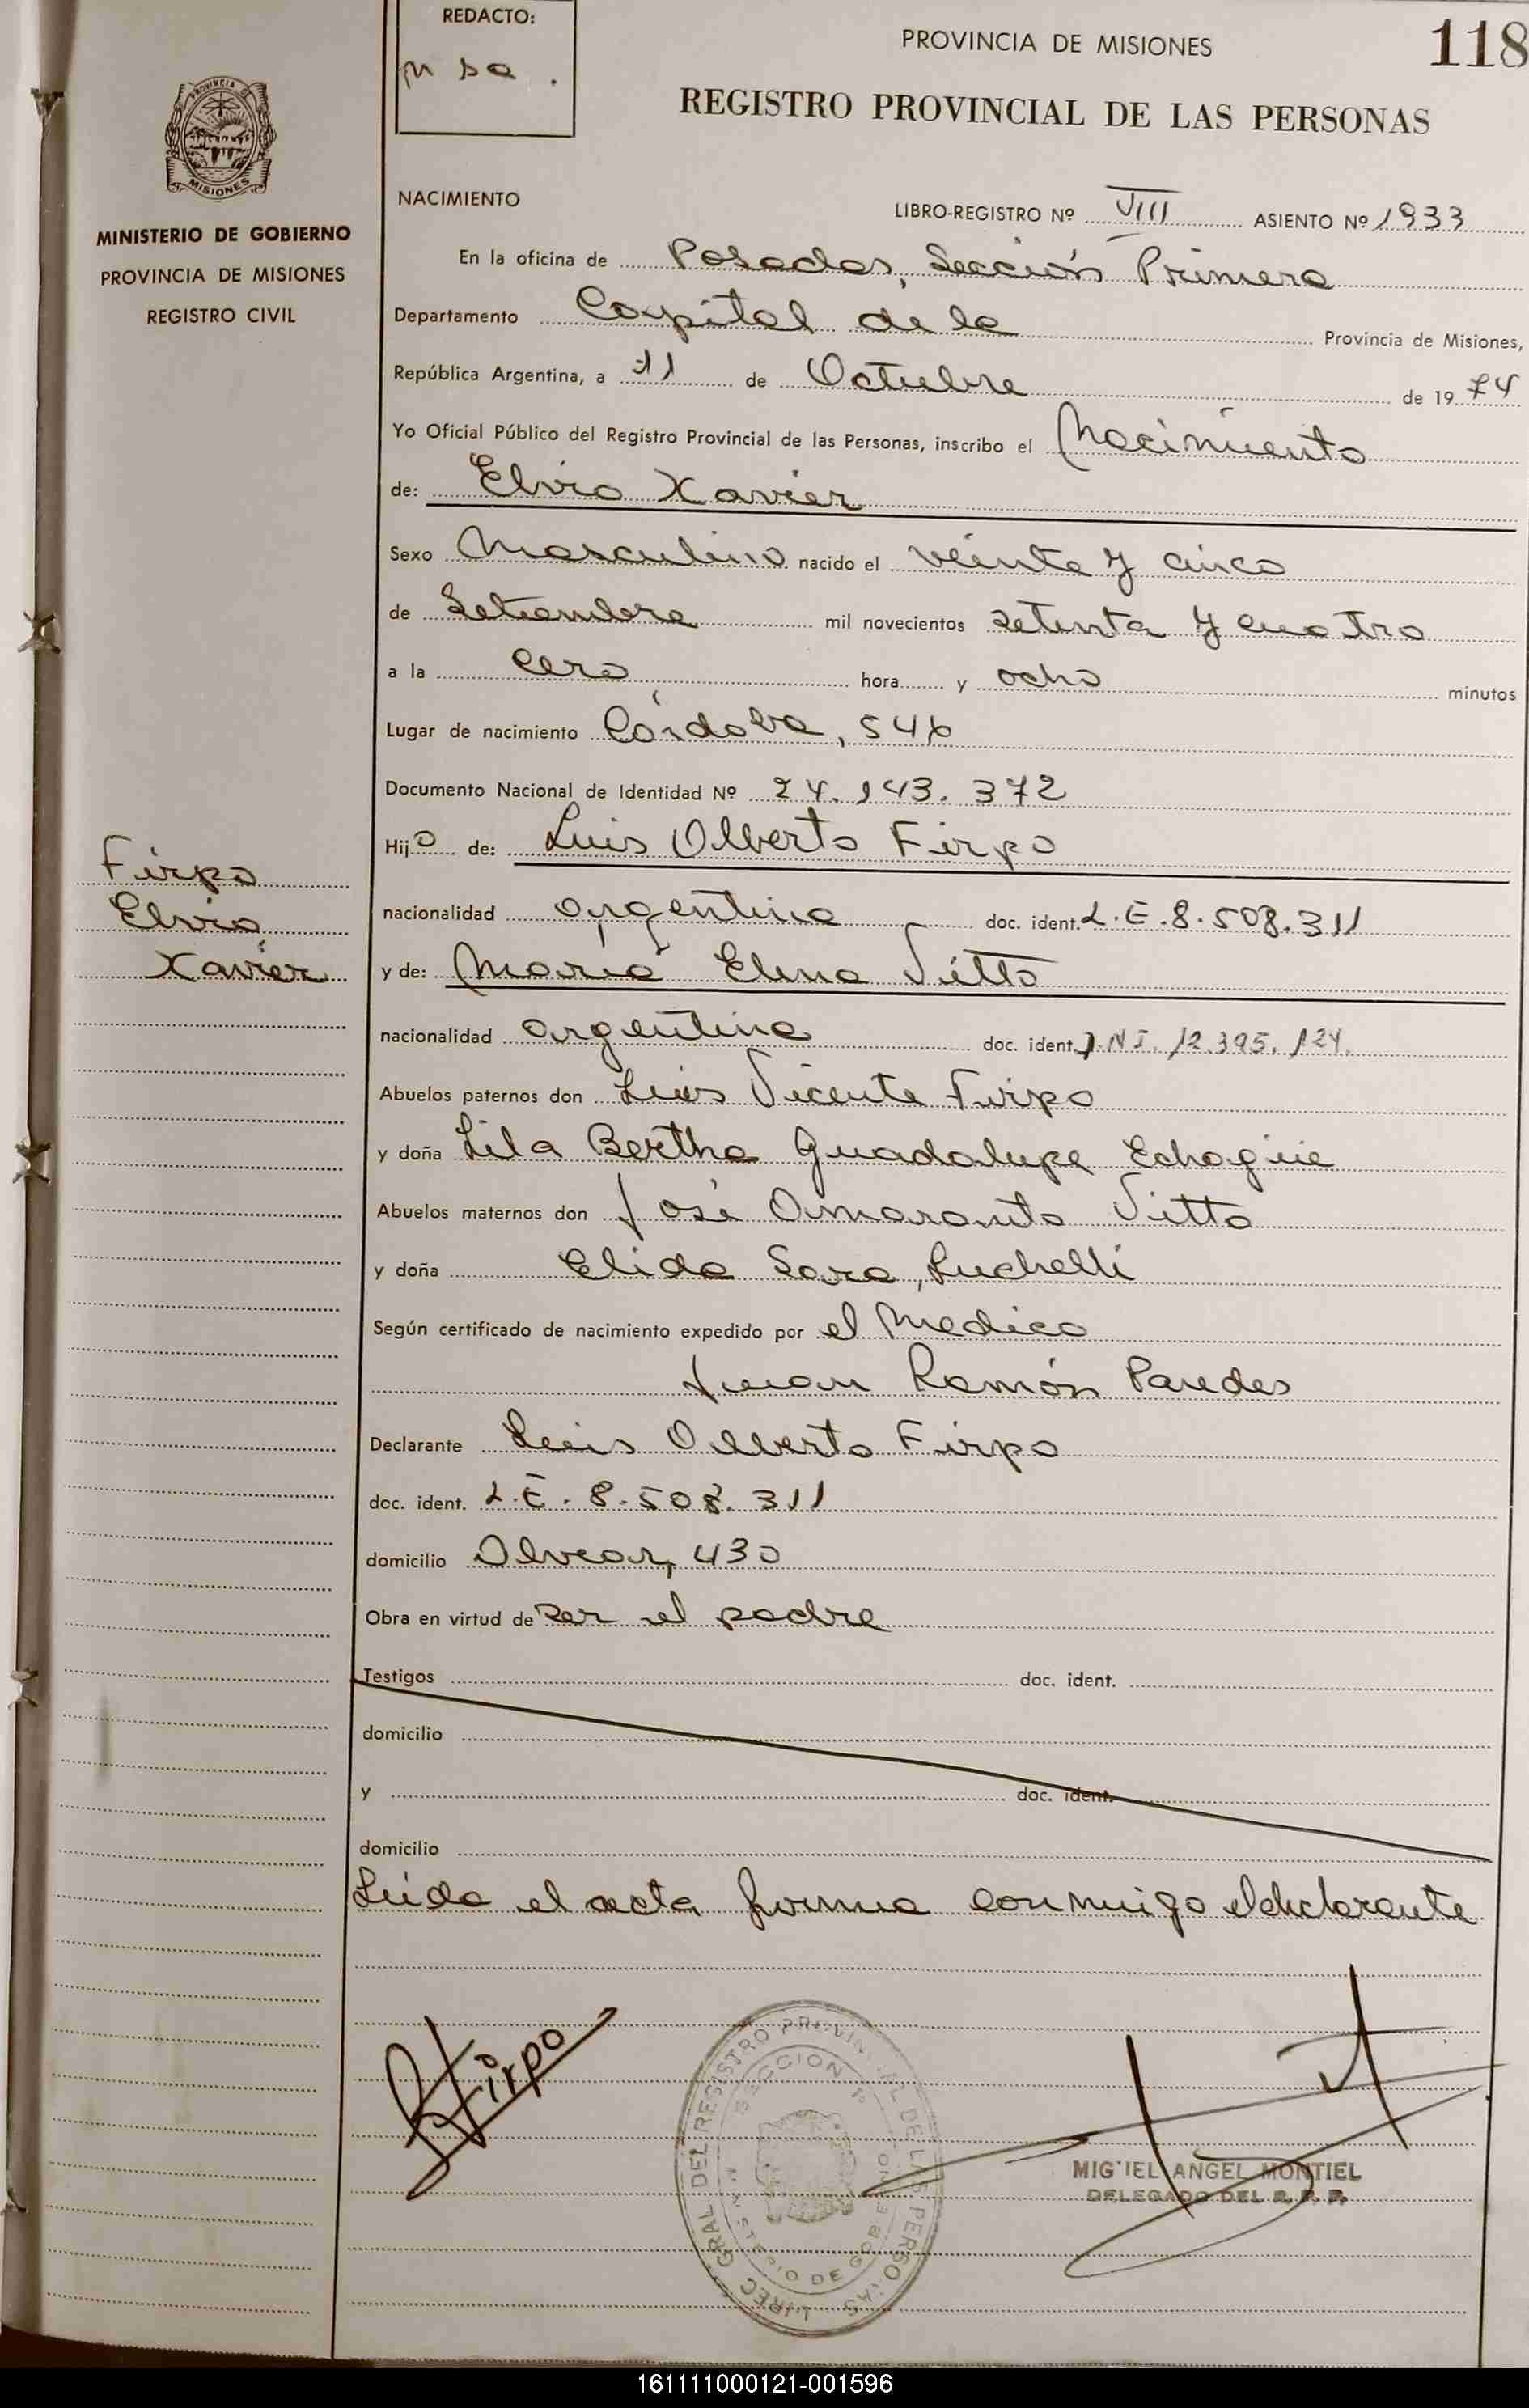 REDACTO:
PROVINCIA DE MISIONES
118
REGISTRO PROVINCIAL DE LAS PERSONAS
MISIONES
MINISTERIO DE GOBIERNO
PROVINCIA DE MISIONES
REGISTRO CIVIL
NACIMIENTO
LIBRO-REGISTRO Nº VIII ASIENTO Nº 1933
En la oficina de Posadas, Sección Primera
Departamento Capital de la Provincia de Misiones,
República Argentina, a 11 de Octubre de 1974
Yo Oficial Público del Registro Provincial de las Personas, inscribo el Nacimiento
de: Elvio Xavier
Sexo Masculino nacido el veinte y cinco
de Setiembre mil novecientos setenta y cuatro
a la cero hora y ocho minutos
Lugar de nacimiento Córdoba, 546
Documento Nacional de Identidad Nº 24.143.372
Hijo de: Luis Alberto Firpo
Firpo
Elvio
Xavier
nacionalidad argentina doc. ident. L.E.8.508.311
y de: María Elena Vitto
nacionalidad argentina doc. ident. D.N.I. 12.395.124.
Abuelos paternos don Luis Vicente Firpo
y doña Lila Bertha Guadalupe Echagüe
Abuelos maternos don José Amaranto Vitto
y doña Elida Sara, Luchelli
Según certificado de nacimiento expedido por el Medico
Juan Ramón Paredes
Declarante Luis Alberto Firpo
doc. ident. L.E. 8.508.311
domicilio Alvear, 430
Obra en virtud de ser el padre
Testigos doc. ident.
domicilio
y doc. ident.
domicilio
Leída el acta firma conmigo el declarante
Firpo
DIREC. GRAL DEL REGISTRO PROVINCIAL DE LAS PERSONAS
SECCION 1ª
MINISTERIO DE GOBIERNO
MIGUEL ANGEL MONTIEL
DELEGADO DEL R. P. P.
161111000121-001596